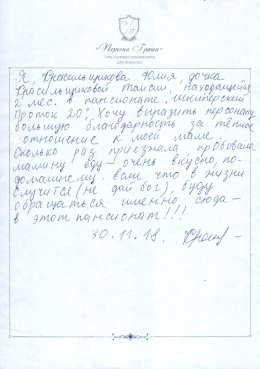 «Перина Грина»
Я, Красильщикова Юлия, дочка
Красильщиковой Таисии, находящейся
2 мес. в пансионате „Шкиперский
Проток 20". Хочу выразить персоналу
большую благодарность за тёплое
отношение к моей маме.
Сколько раз приезжала, пробовала
мамину еду — очень вкусно, по-
домашнему. Если что в жизни
случится (не дай бог), буду
обращаться именно сюда —
в этот пансионат!!!
30.11.18.